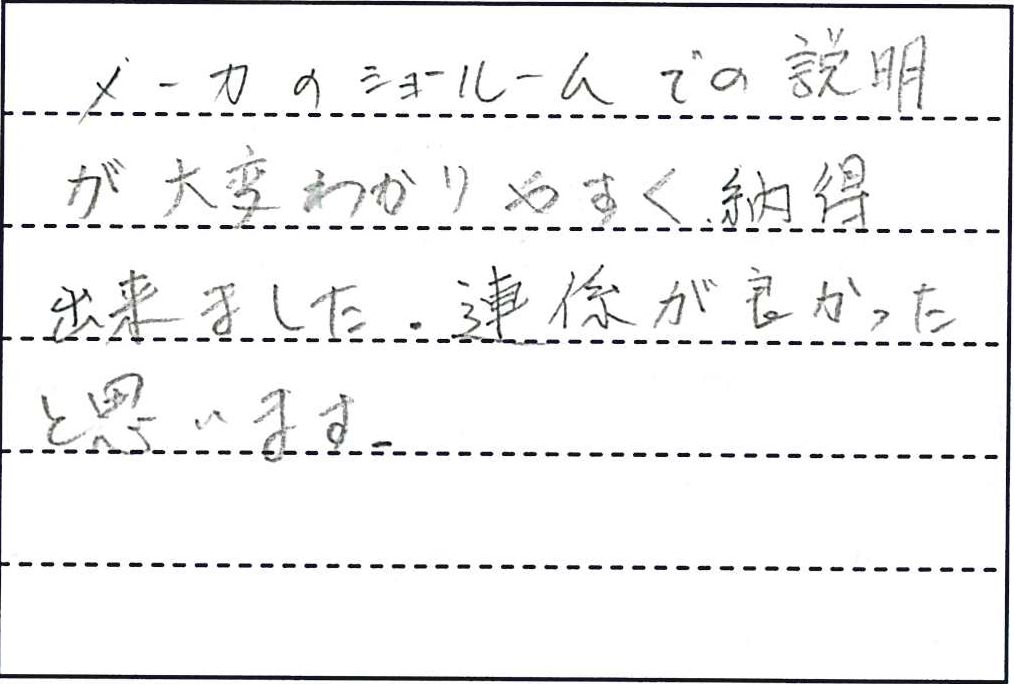 メーカのショールームでの説明
が大変わかりやすく、納得
出来ました。連係が良かった
と思います。